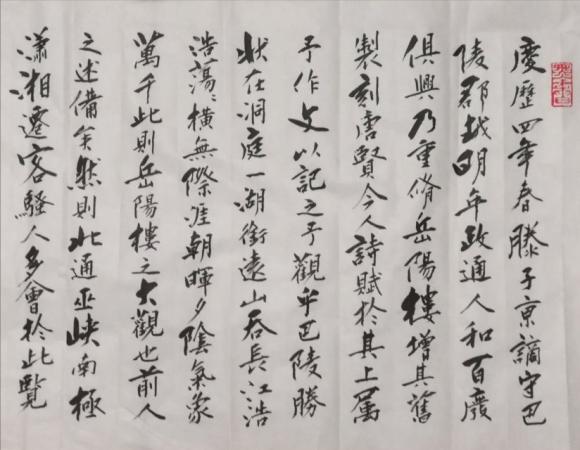 慶歷四年春滕子京謫守巴
陵郡越明年政通人和百廢
俱興乃重脩岳陽樓增其舊
製刻唐賢今人詩賦於其上屬
予作文以記之予觀乎巴陵勝
狀在洞庭一湖銜遠山吞長江浩
浩蕩々橫無際涯朝暉夕陰氣象
萬千此則岳陽樓之大觀也前人
之述備矣然則北通巫峽南極
瀟湘遷客騷人多會於此覽